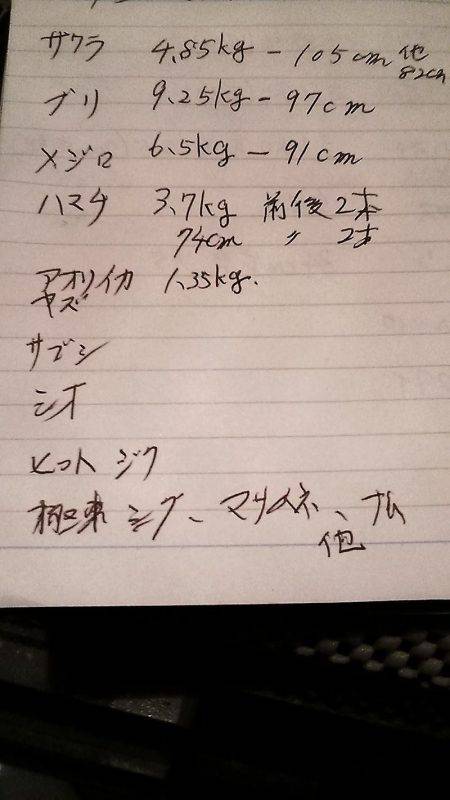 サワラ 4.85kg - 105cm 他 82cm
ブリ 9.25kg - 97cm
メジロ 6.5kg - 91cm
ハマチ 3.7kg 前後 2本
74cm 〃 2本
アオリイカ 1.35kg.
ヤズ
サゴシ
シオ
ヒット ジグ
極東ジグ、マサムネ、ナム
他